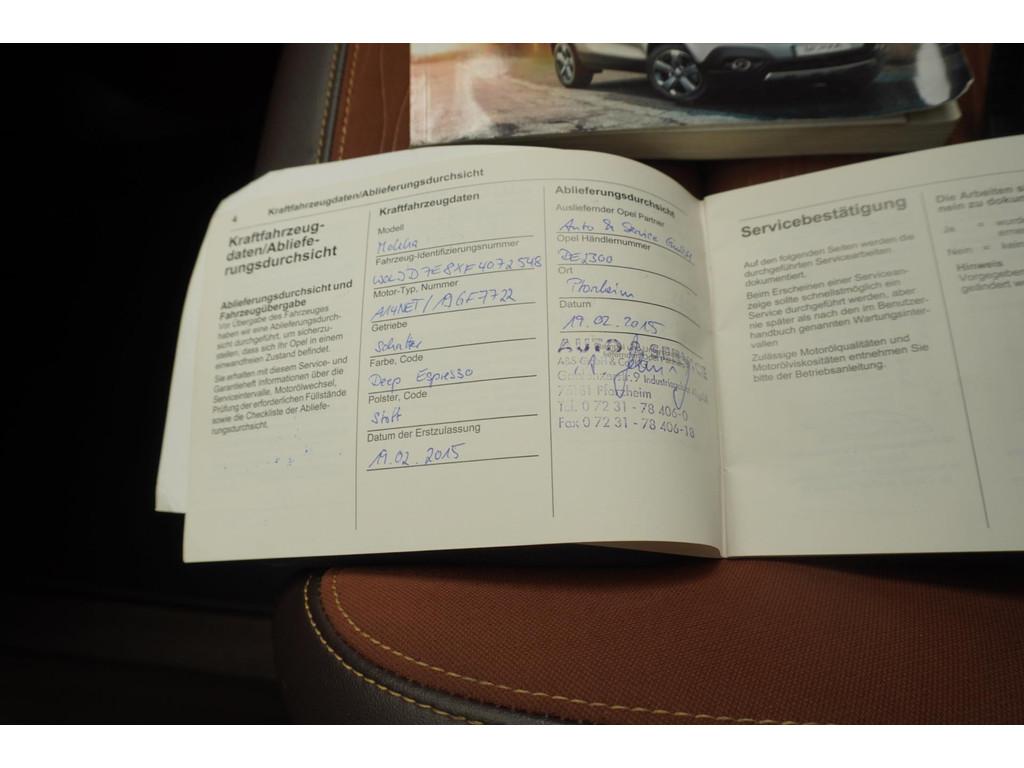 4 Kraftfahrzeugdaten/Ablieferungsdurchsicht
Kraftfahrzeug-
daten/Abliefe-
rungsdurchsicht
Ablieferungsdurchsicht und
Fahrzeugübergabe
Vor Übergabe des Fahrzeuges
haben wir eine Ablieferungsdurch-
sicht durchgeführt, um sicherzu-
stellen, dass sich Ihr Opel in einem
einwandfreien Zustand befindet.
Sie erhalten mit diesem Service- und
Garantieheft Informationen über die
Serviceintervalle, Motorölwechsel,
Prüfung der erforderlichen Füllstände
sowie die Checkliste der Abliefe-
rungsdurchsicht.
Kraftfahrzeugdaten
Modell
Mokka
Fahrzeug-Identifizierungsnummer
W0LJD7E8XF4072548
Motor-Typ, Nummer
A14NET/19GF7722
Getriebe
Schalter
Farbe, Code
Deep Espresso
Polster, Code
Stoff
Datum der Erstzulassung
19.02.2015
Ablieferungsdurchsicht
Ausliefernder Opel Partner
Auto & Service GmbH
Opel Händlernummer
DE2300
Ort
Pforzheim
Datum
19.02.2015
AUTO & SERVICE
ASG GmbH & Co
9 Industriegebiet
75181 Pforzheim
Tel. 0 72 31 - 78 406-0
Fax 0 72 31 - 78 406-18
Servicebestätigung
Auf den folgenden Seiten werden die
durchgeführten Servicearbeiten
dokumentiert.
Beim Erscheinen einer Servicean-
zeige sollte schnellstmöglich ein
Service durchgeführt werden, aber
nie später als nach den im Benutzer-
handbuch genannten Wartungsinter-
vallen
Zulässige Motorölqualitäten und
Motorölviskositäten entnehmen Sie
bitte der Betriebsanleitung.
Die Arbeiten s
nein zu dokum
Ja = wurde
erne
Nein = kein
Hinweis
Vorgegeben
geändert w